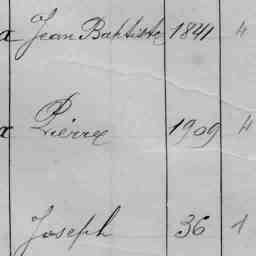 x Jean Baptiste 1841 4
x Pierre 1909 4
Joseph 36 4